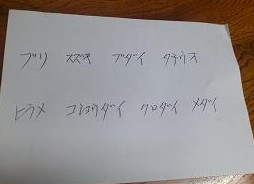 ブリ スズキ ブダイ タチウオ
ヒラメ コショウダイ クロダイ メダイ